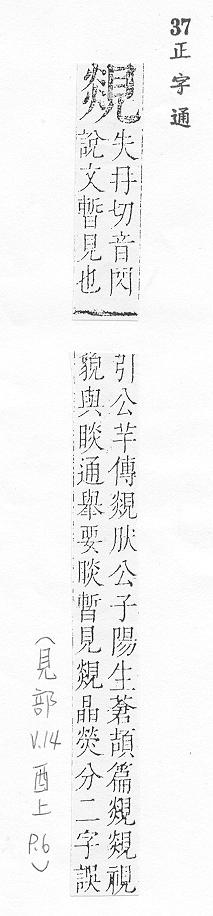 37正字通
覢
失冉切音閃
說文暫見也
引公羊傳覢肰公子陽生蒼頡篇覢覢視
貌與睒通舉要睒暫見覢晶熒分二字誤
(見部 V.14 酉上 P.6)